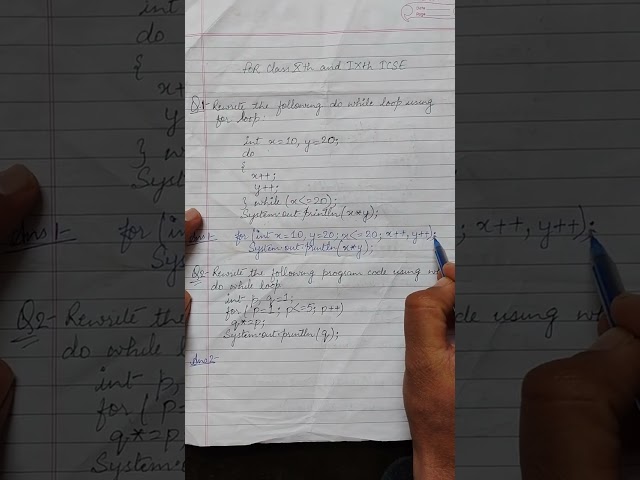 FOR Class Xth and IXth ICSE
Q.1- Rewrite the following do while loop using
for loop.
int x=10, y=20;
do
{
x++;
y++;
} while (x<=20);
System.out.println(x*y);
Ans1- for (int x=10, y=20; x<=20; x++, y++);
System.out.println(x*y);
Q2- Rewrite the following program code using
do while loop
int p, q=1;
for (p=1; p<=5; p++)
q*=p;
System.out.println(q);
Ans2-